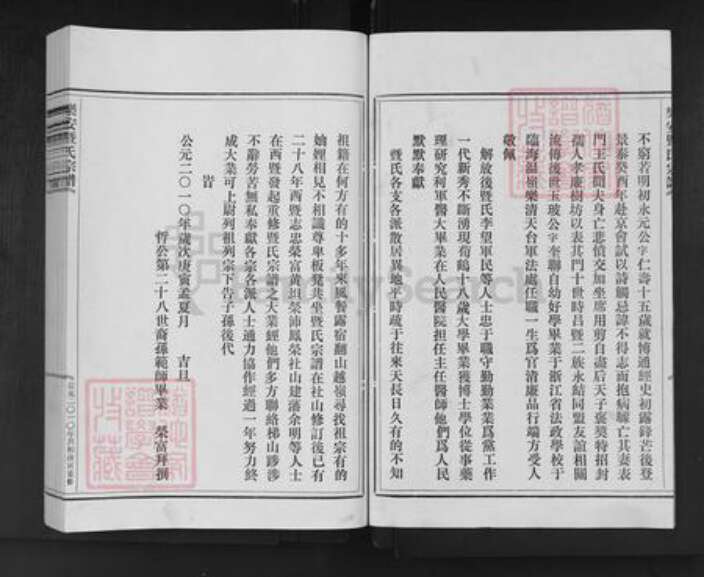 不窮若明初永元公字仁壽十五歲就博通經史初露鋒芒後登
景泰癸酉年赴京會試以詩觸忌諱不得志而抱病驟亡其妻表
門王氏聞夫身亡悲憤交加坐席用剪自盡后天子褒獎特招封
孺人孝廉樹坊以表其門十世時昌暨二族永結同盟友誼相關
流傳後世玉玻公字奎聯自幼好學畢業于浙江省法政學校于
臨海溫嶺樂清天台軍法處任職一生爲官清廉品行端方受人
敬佩
解放後暨氏李望軍民等人士忠于職守勤勤業業爲黨工作
一代新秀不斷湧現荀鶴十八歲大學畢業獲博士學位從事藥
理研究利軍醫大畢業在人民醫院担任主任醫師他們爲人民
默默奉獻
暨氏各支各派散居異地平時疏于往來天長日久有的不知
祖籍在何方有的十多年來風餐露宿翻山越嶺尋找祖宗有的
妯娌相見不相識尊卑板凳共坐暨氏宗譜在社山修訂後已有
二十八年西暨志忠榮富黃坦榮沛鳳榮社山建藩余明等人士
在西暨發起重修暨氏宗譜之大業他們多方聯絡梯山跋涉
不辭勞苦無私奉獻各宗各派人士通力協作經過一年努力終
成大業可上尉列祖列宗下告子孫後代
旹
公元二〇一〇年歲次庚寅孟夏月 吉旦
哲公第二十八世裔孫範師畢業 榮富拜撰
暨氏宗譜